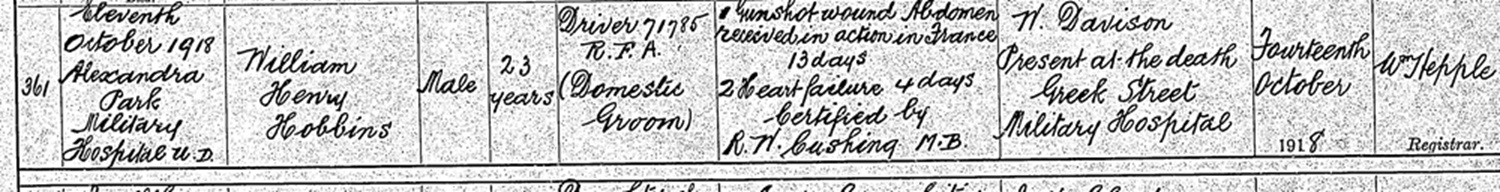 361
Eleventh
October 1918
Alexandra
Park
Military
Hospital U.D.
William
Henry
Hobbins
Male
23
years
Driver 71785
R.F.A.
(Domestic
Groom)
1 Gunshot wound Abdomen
received in action in France
13 days
2 Heart failure 4 days
Certified by
R. W. Cushing M.B.
W. Davison
Present at the death
Greek Street
Military Hospital
Fourteenth
October
1918
Wm Hepple
Registrar.